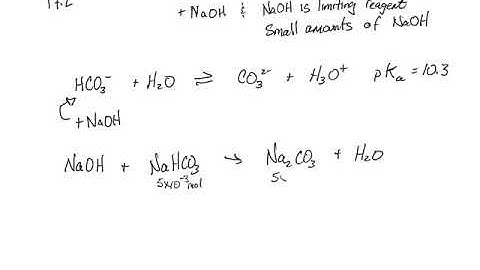 17.2
+ NaOH & NaOH is limiting reagent
Small amounts of NaOH
HCO₃⁻ + H₂O ⇌ CO₃²⁻ + H₃O⁺ pKₐ = 10.3
+ NaOH
NaOH + NaHCO₃ → Na₂CO₃ + H₂O
5×10⁻³ mol 5